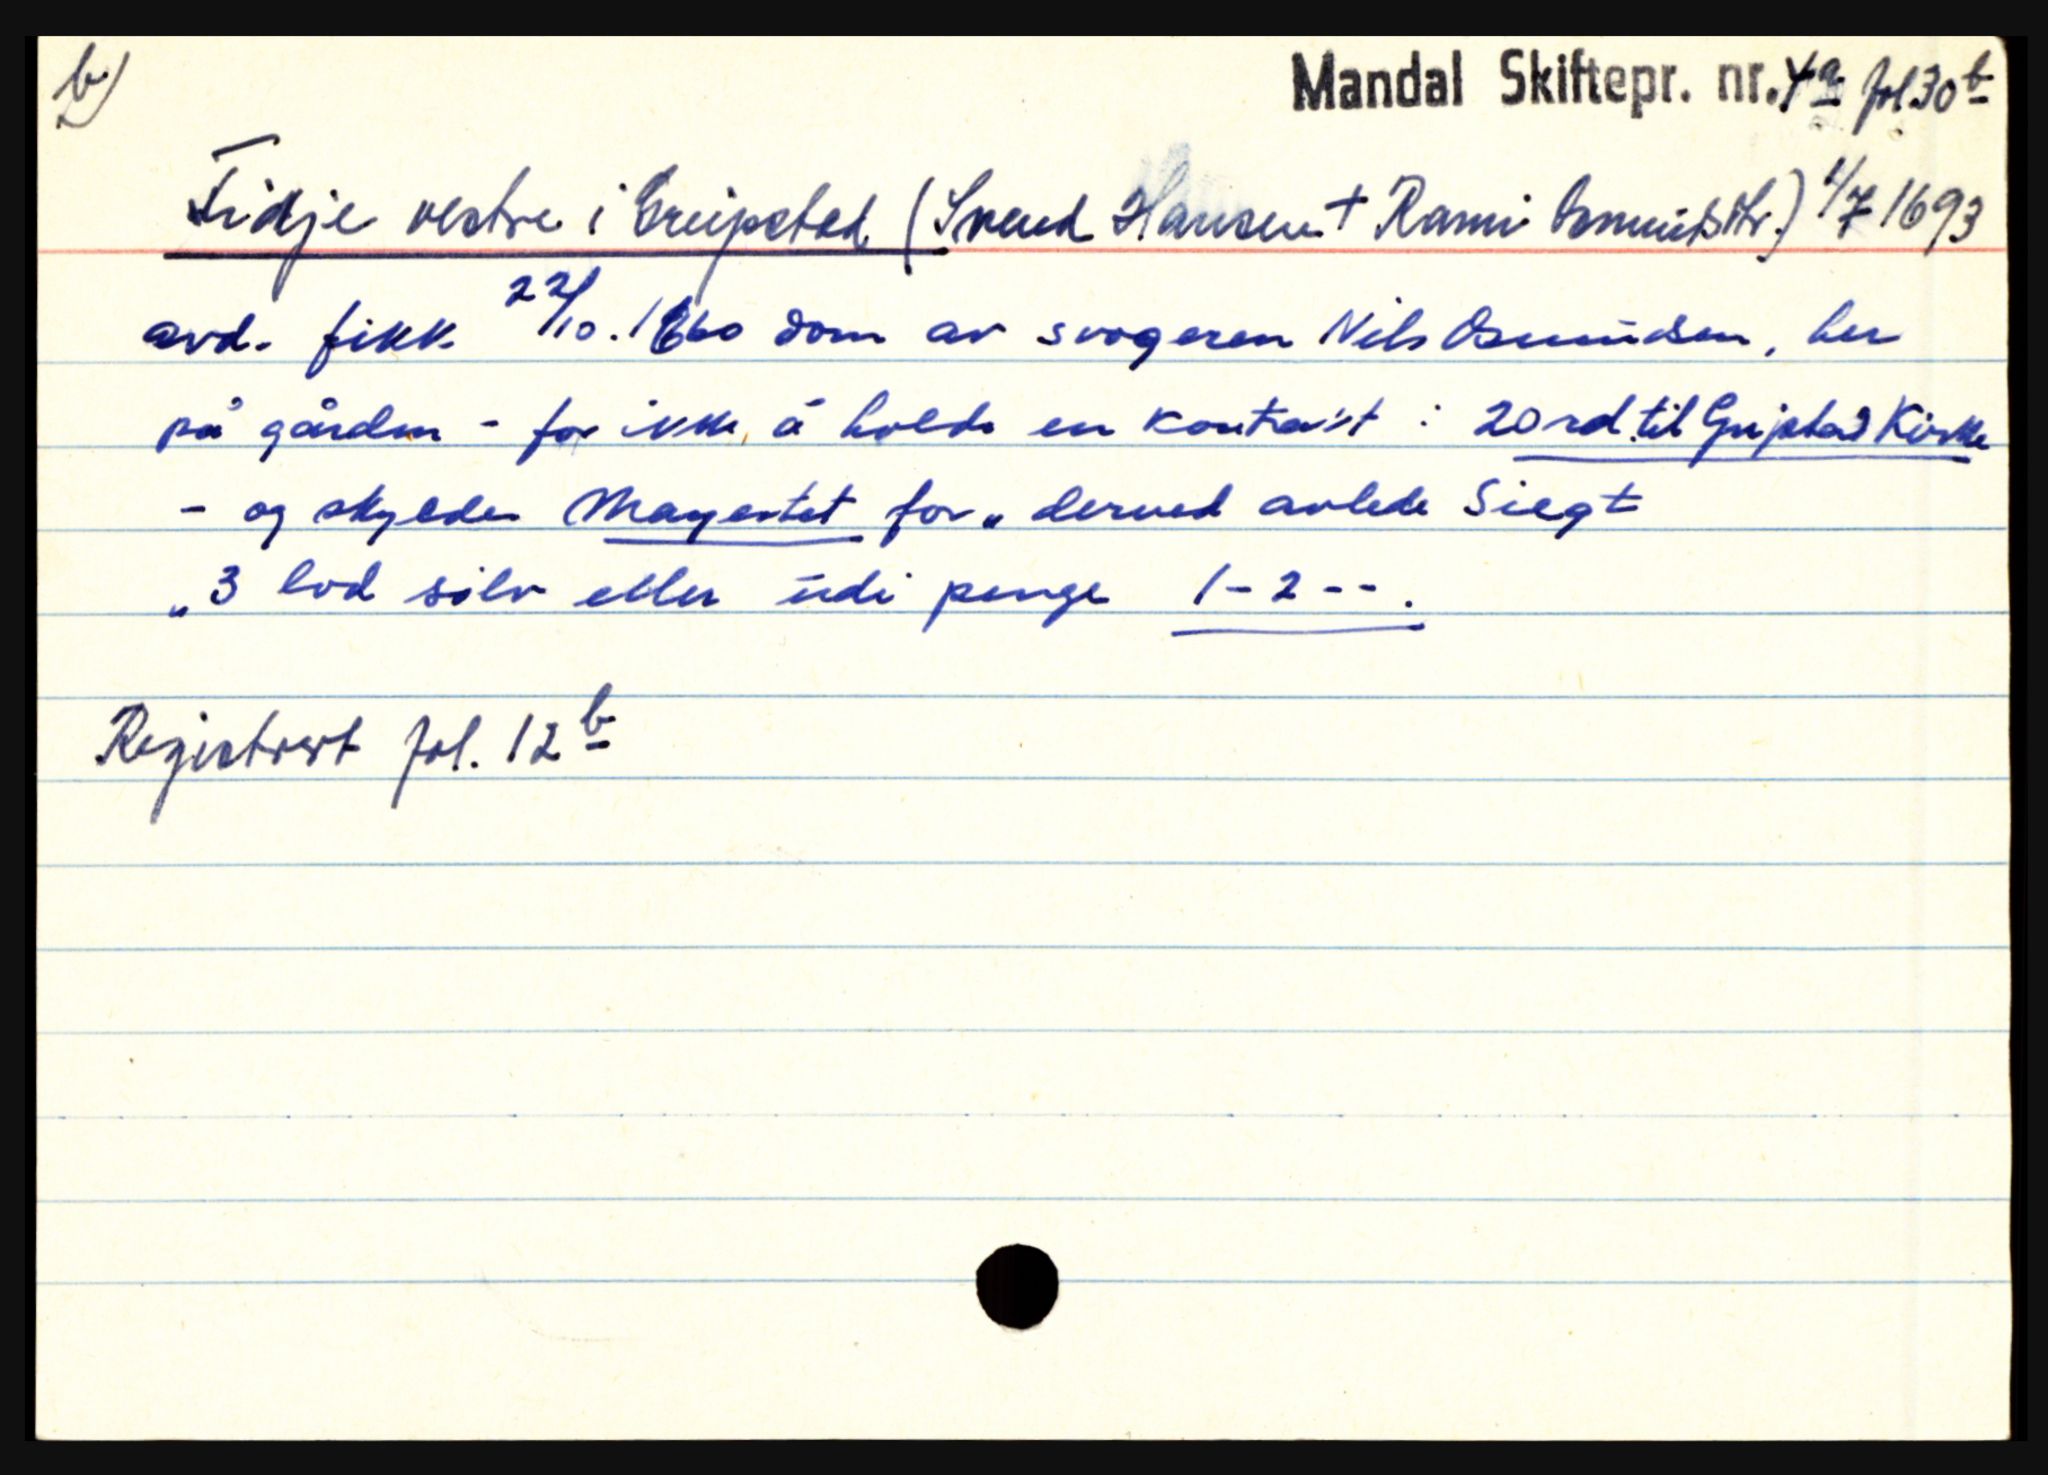 b)
Mandal Skiftepr. nr. 4a fol 30b
Fidje vestre i Greipstad (Svend Hansen + Rami Osmundsdtr.) 4/7 1693
avd. fikk 22/10. 1660 dom av svogeren Nils Osmundsen, her
på gården - for ikke å holde en kontrakt : 20 rd. til Gripstad Kirke
- og skylder Mayestet for „ derved avlede Siegt
„ 3 lod sølv eller udi penge 1-2--.
Registrert fol. 12b